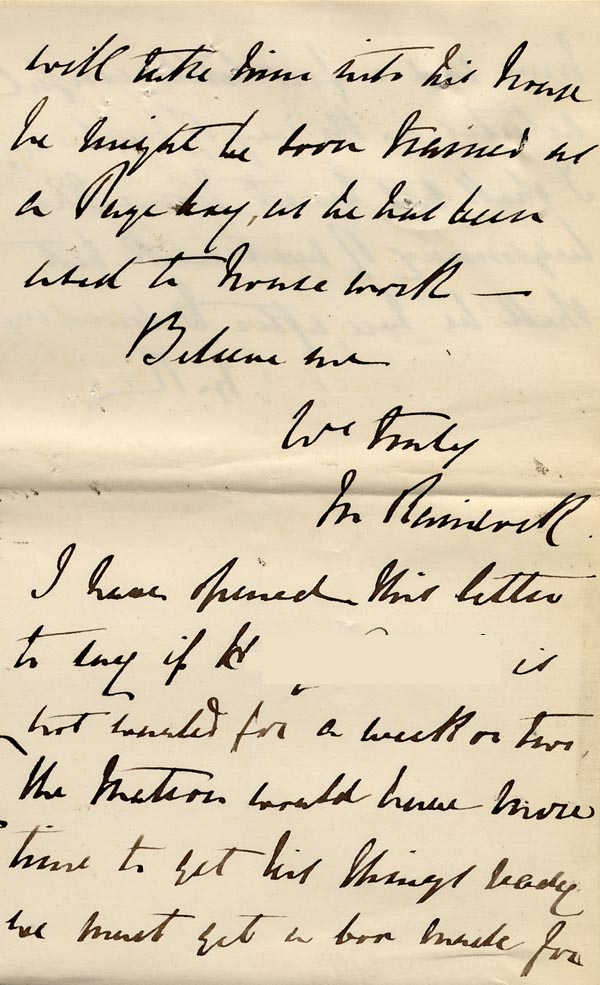 will take him into his house
he might be soon trained as
a Page boy, as he has been
used to house work —
Believe me
yrs truly
I have opened this letter
to say if H is
not wanted for a week or two,
the Matron would have more
time to get his things ready
we must get a box made for